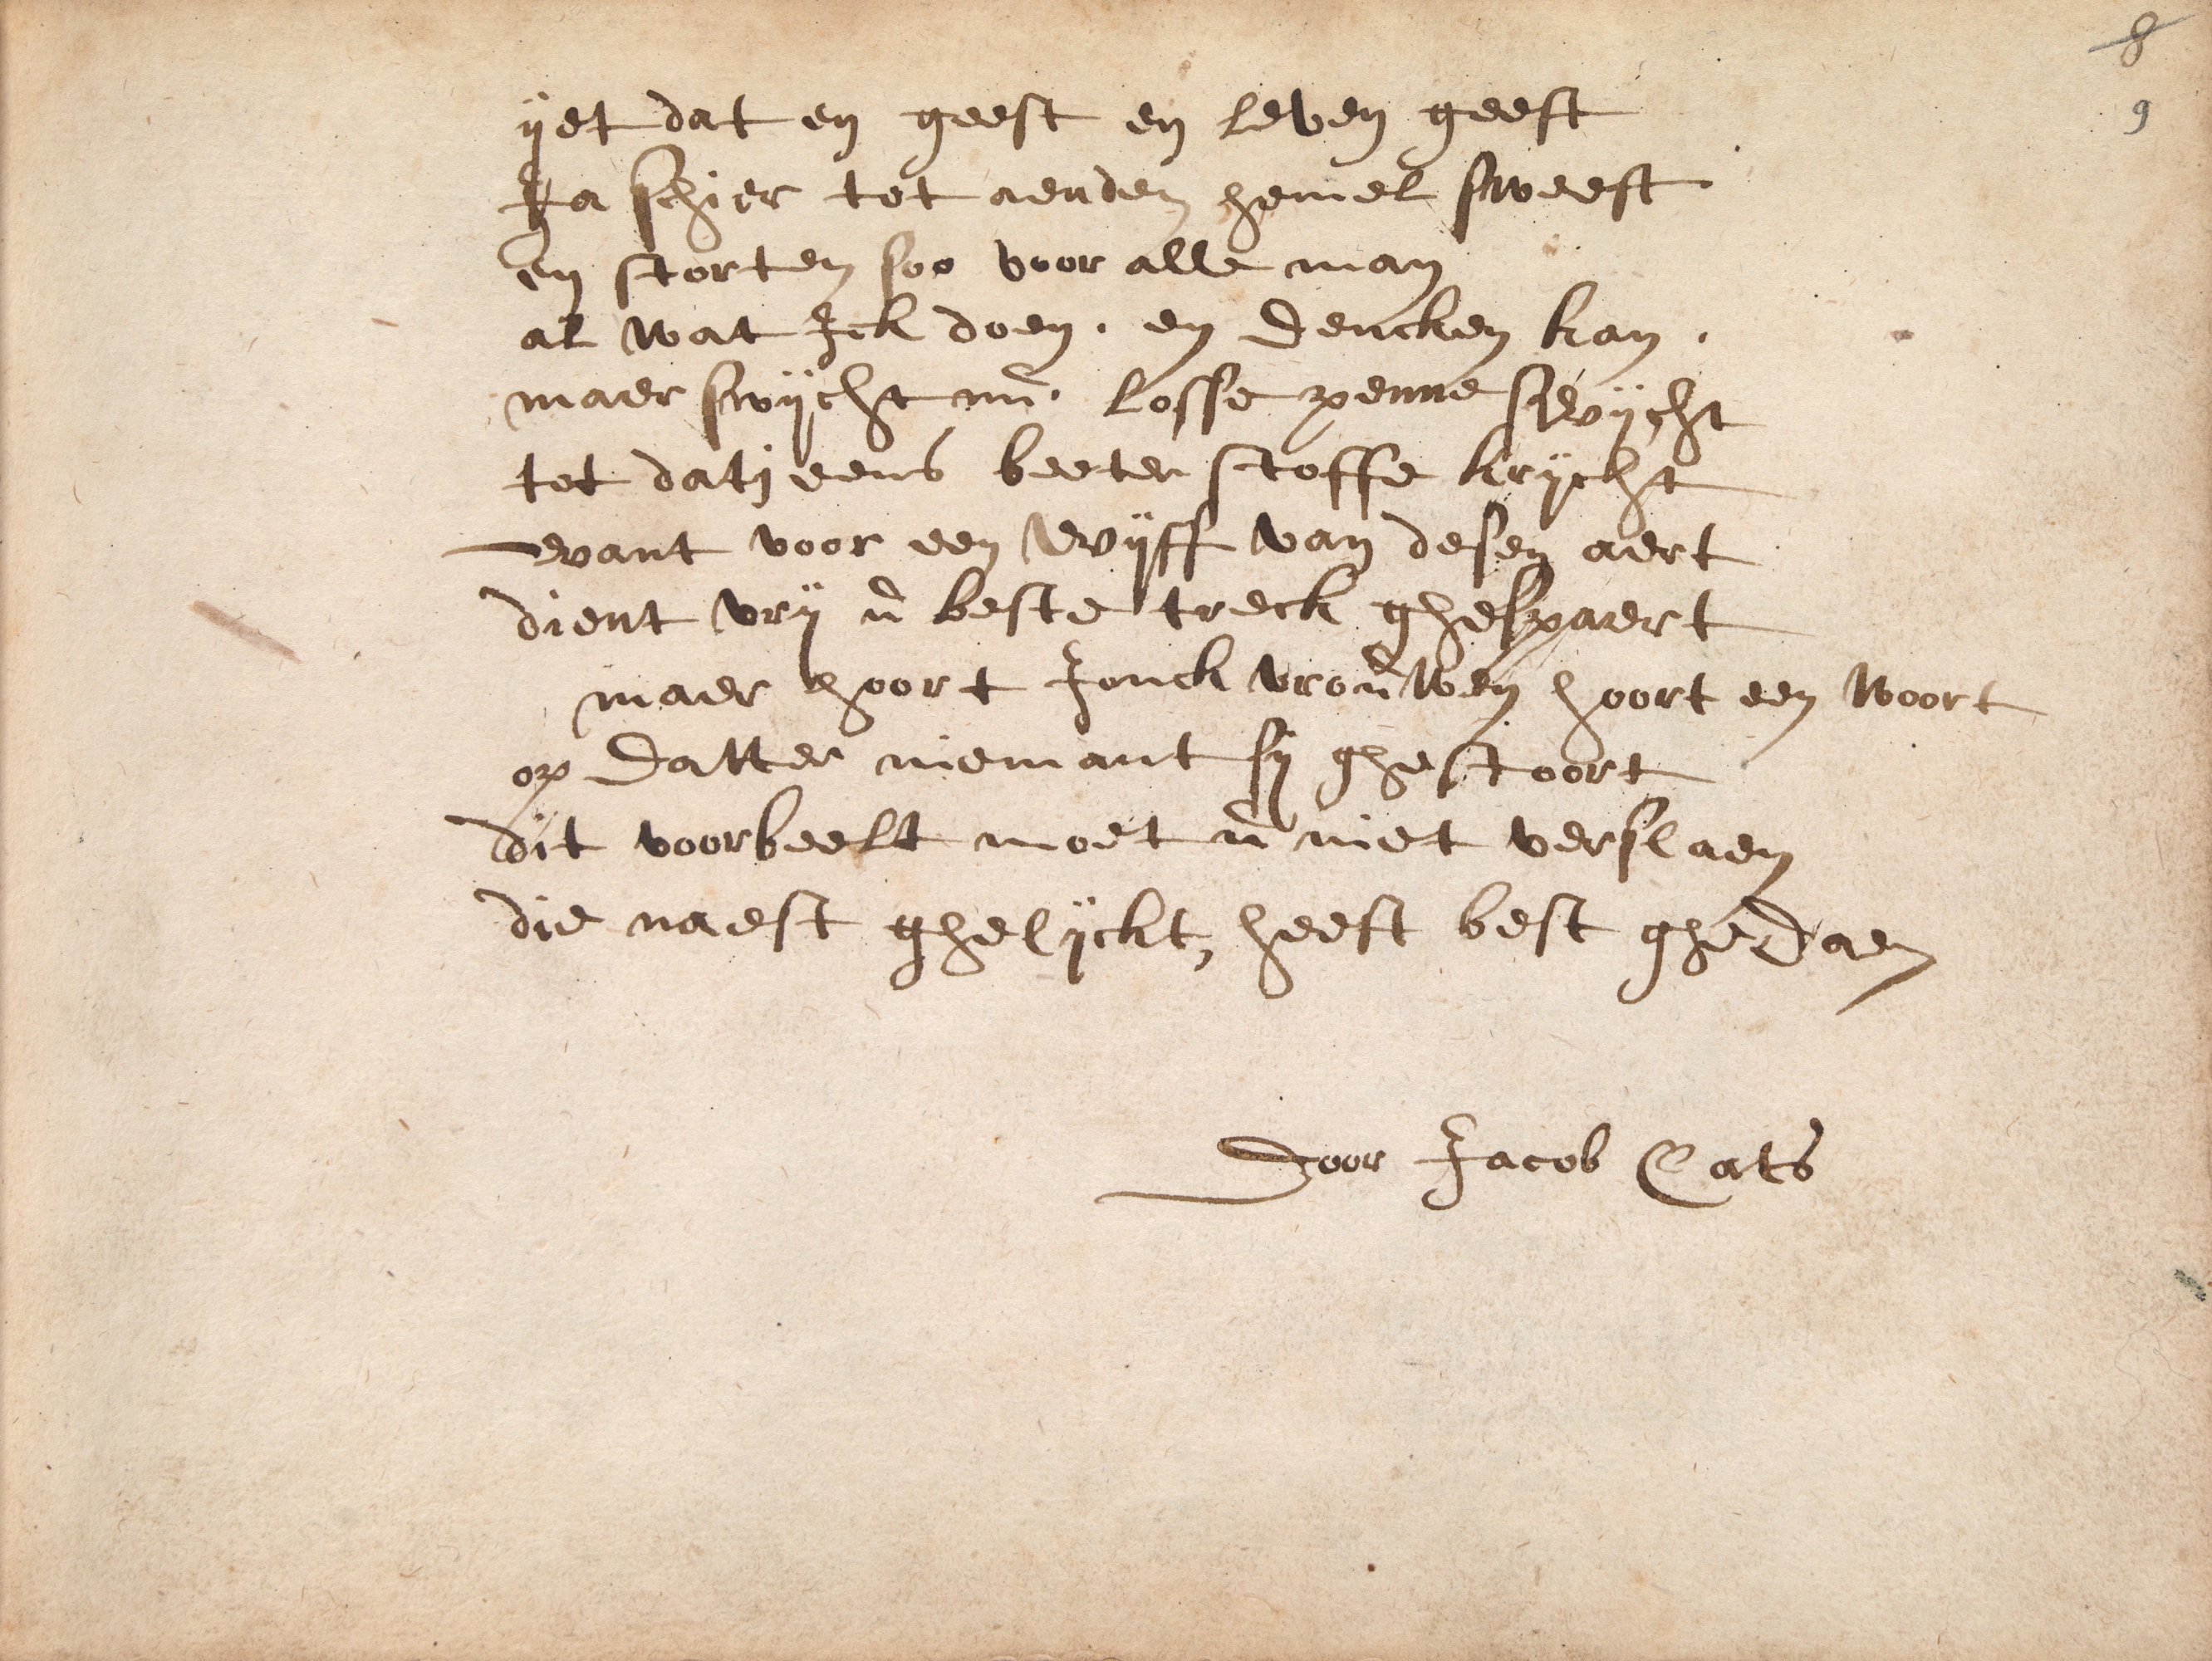 8
9
ÿet dat en geest en leven geeft
Ja schier tot aenden hemel sweeft
en storten soo voor alle man
al wat Ick doen. en dencken kan.
maer swÿcht nu. losse penne swÿcht
tot datj eens beeter stoffe krÿcht
want voor een wÿff van desen aert
dient vrÿ u beste treck ghespaert
maer hoort Jonck vrouwen hoort een woort
op datter niemant sÿ ghestoort
dit voorbeelt moet u niet verslaen
die naest ghelÿckt, heeft best ghedaen
Door Jacob Cats